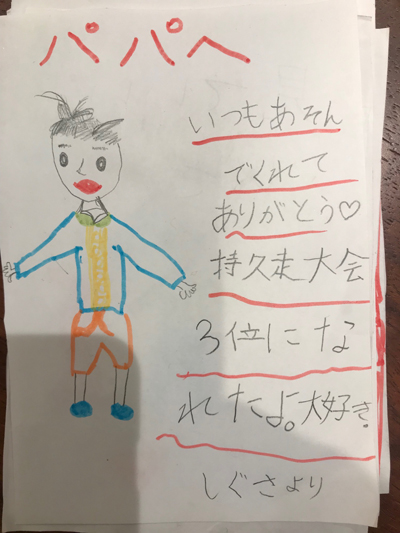 パパへ
いつもあそん
でくれて
ありがとう♡
持久走大会
3位にな
れたよ。大好き。
しぐさより